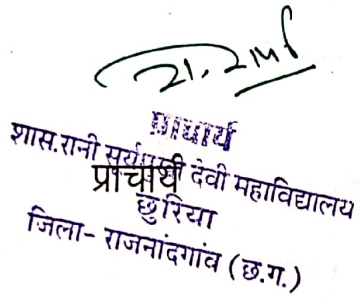 प्राचार्य
शास.रानी सूर्यमुखी देवी महाविद्यालय
प्राचार्य
छुरिया
जिला- राजनांदगांव (छ.ग.)